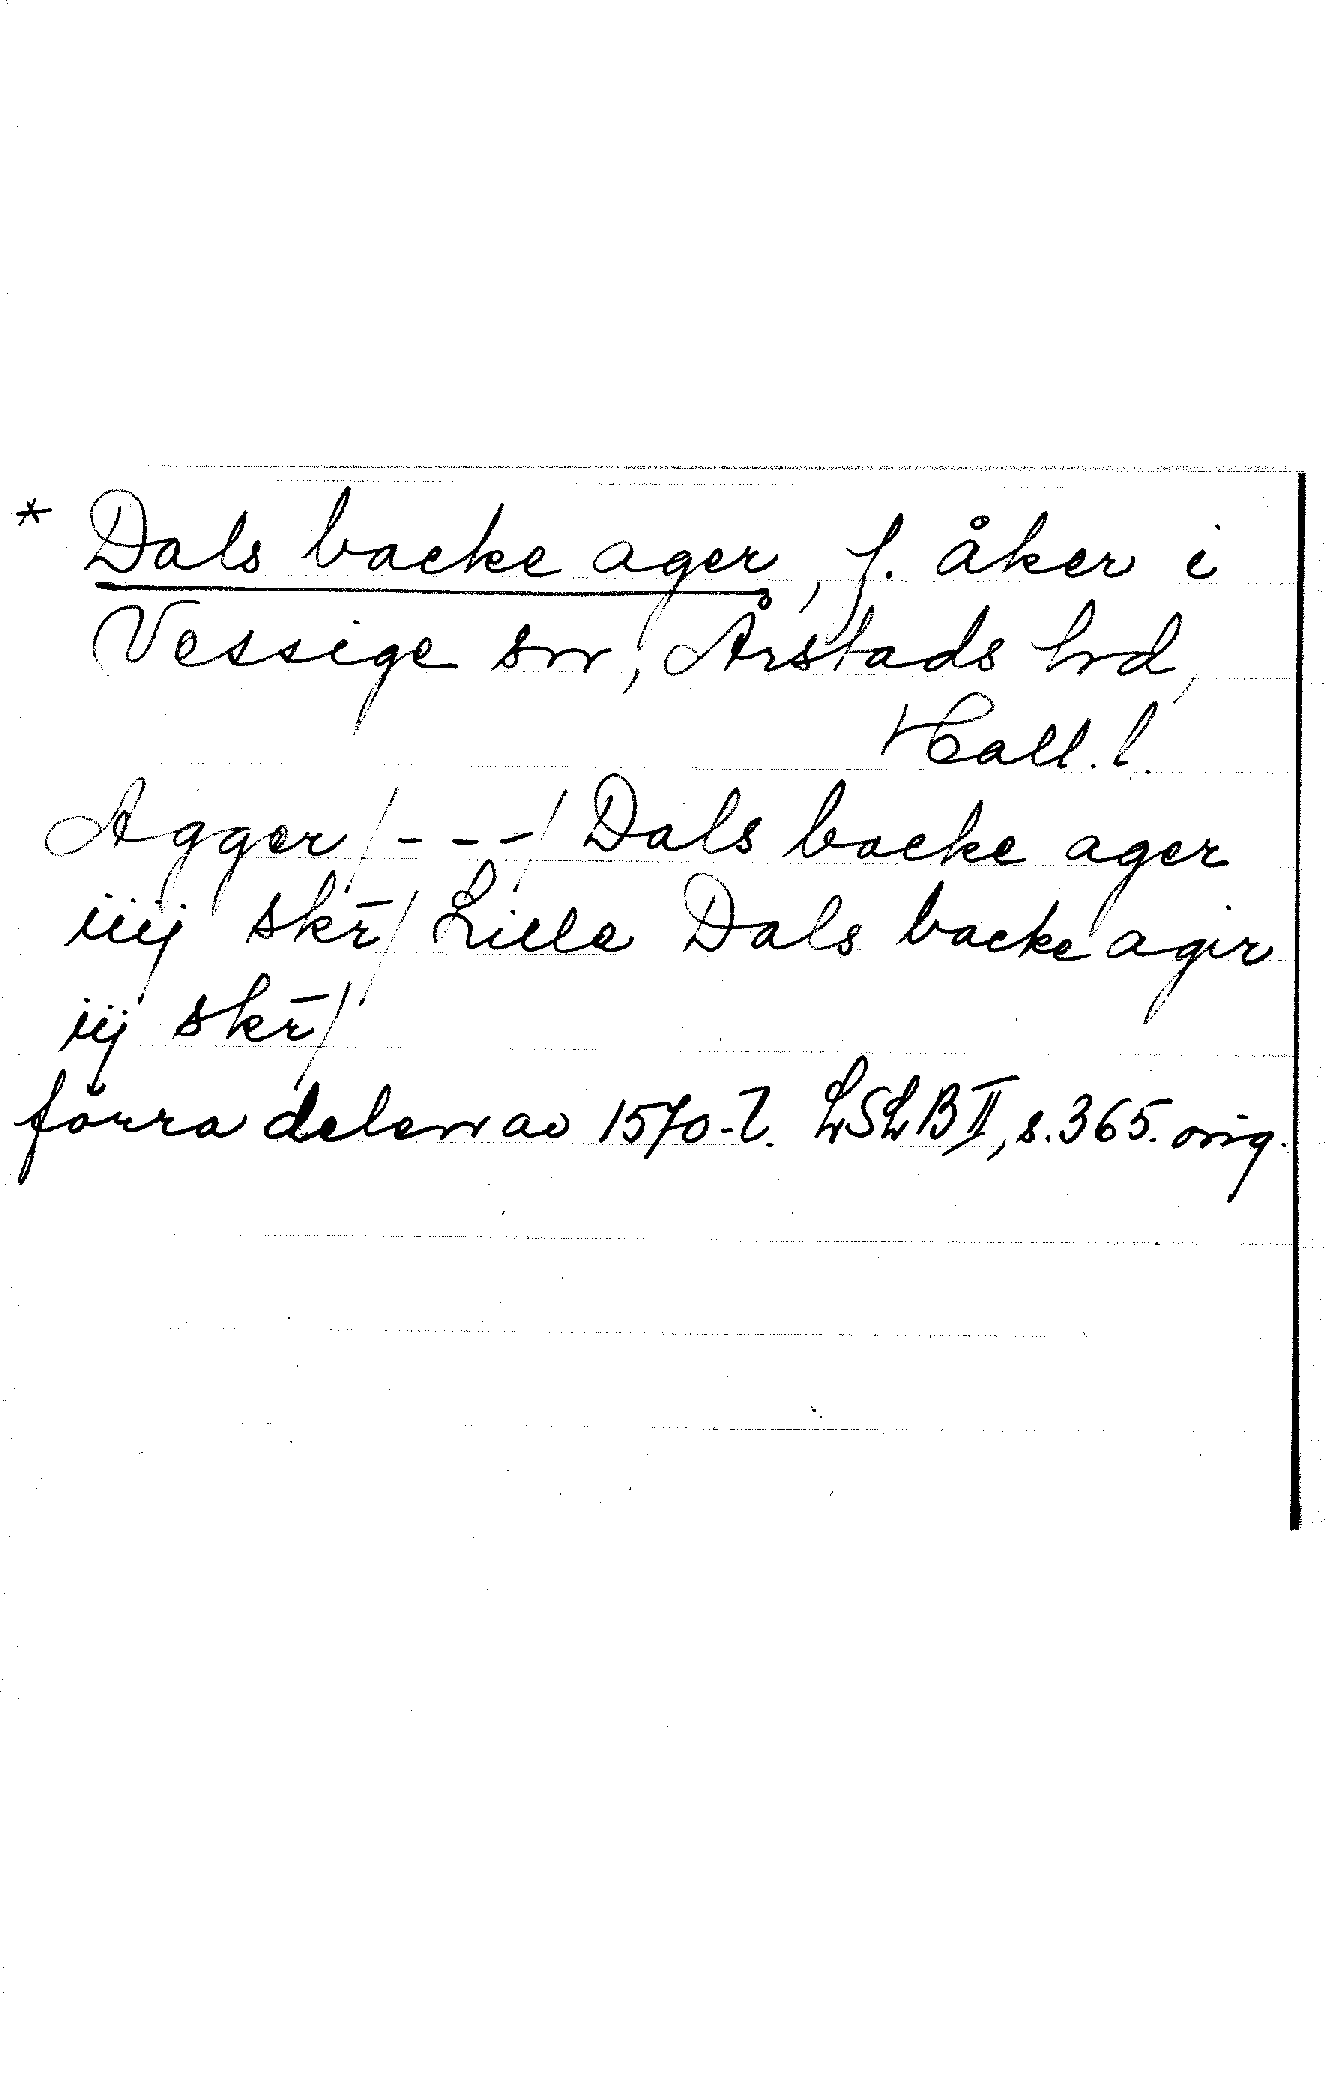 * Dals backe ager, f. åker i
Vessige sn, Årstads hd,
Hall. l.
Agger / - - - / Dals backe ager
iiij skr̄ / Lille Dals backe agir
iij skr̄ /
förra delen av 1570-t. LSLB II, s. 365. orig.